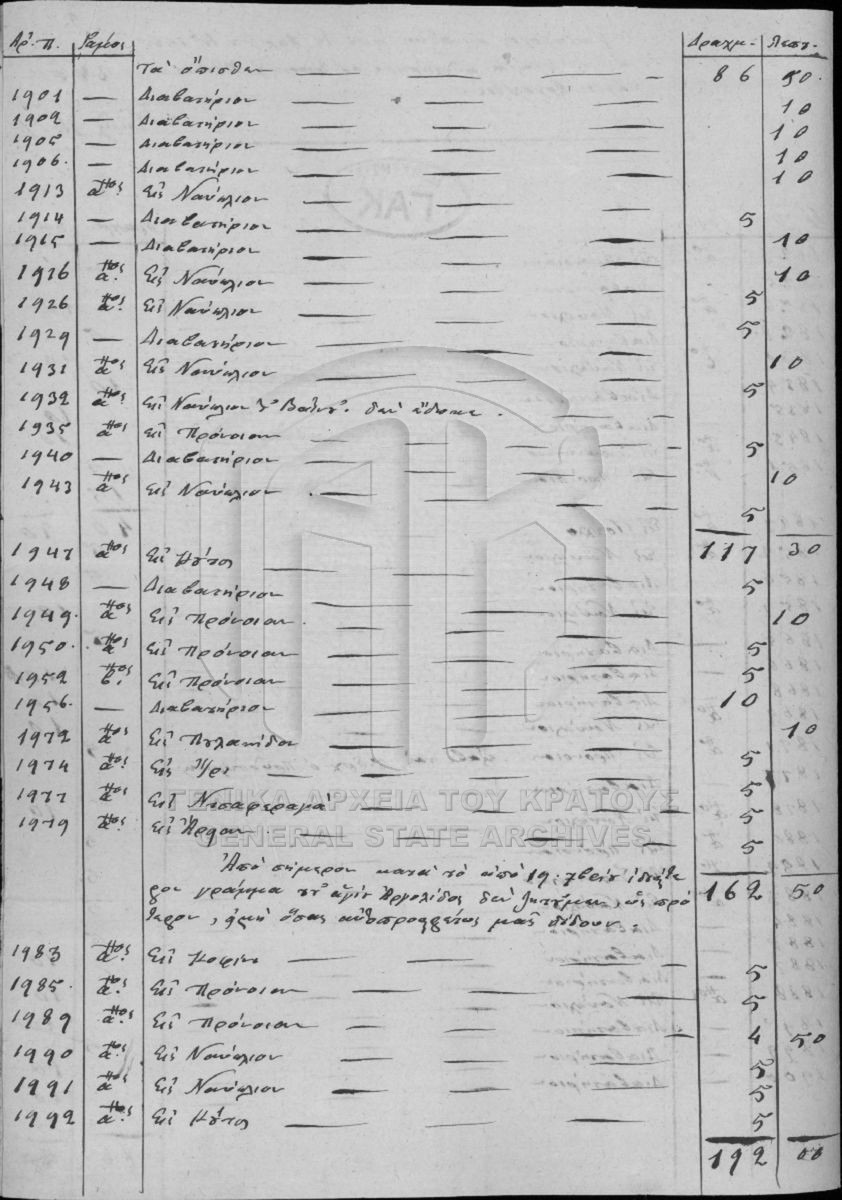 Ἀρ. Π. Γάμος Δραχμ. Λεπτ.
Τὰ ὄπισθεν 86 50
1901 — Διαβατήριον 10
1902 — Διαβατήριον 10
1905 — Διαβατήριον 10
1906 — Διαβατήριον 10
1913 α:ος Εἰς Ναύπλιον 5
1914 — Διαβατήριον 10
1915 — Διαβατήριον 10
1916 α:ος Εἰς Ναύπλιον 5
1926 α:ος Εἰς Ναύπλιον 5
1929 — Διαβατήριον 10
1931 α:ος Εἰς Ναύπλιον 5
1932 α:ος Εἰς Ναύπλιον δὲν ἔδωκε.
1935 α:ος Εἰς Πρόνοιαν 5
1940 — Διαβατήριον 10
1943 α:ος Εἰς Ναύπλιον 5
117 30
1947 α:ος Εἰς 5
1948 — Διαβατήριον 10
1949 α:ος Εἰς Πρόνοιαν 5
1950 α:ος Εἰς Πρόνοιαν 5
1952 β:ος Εἰς Πρόνοιαν 10
1956 — Διαβατήριον 10
1972 α:ος Εἰς 5
1974 α:ος Εἰς 5
1977 α:ος Εἰς 5
1979 α:ος Εἰς Ἄργος 5
ΓΕΝΙΚΑ ΑΡΧΕΙΑ ΤΟΥ ΚΡΑΤΟΥΣ
GENERAL STATE ARCHIVES
Ἀπὸ σήμερον κατὰ τὸ ἀπὸ 19
γράμμα Ἀργολίδος δὲν ζητοῦμεν ὡς πρό
τερον, μᾶς δίδουν. 162 50
1983 α:ος Εἰς 5
1985 α:ος Εἰς Πρόνοιαν 5
1989 α:ος Εἰς Πρόνοιαν 4 50
1990 α:ος Εἰς Ναύπλιον 5
1991 α:ος Εἰς Ναύπλιον 5
1992 α:ος Εἰς 5
192 00